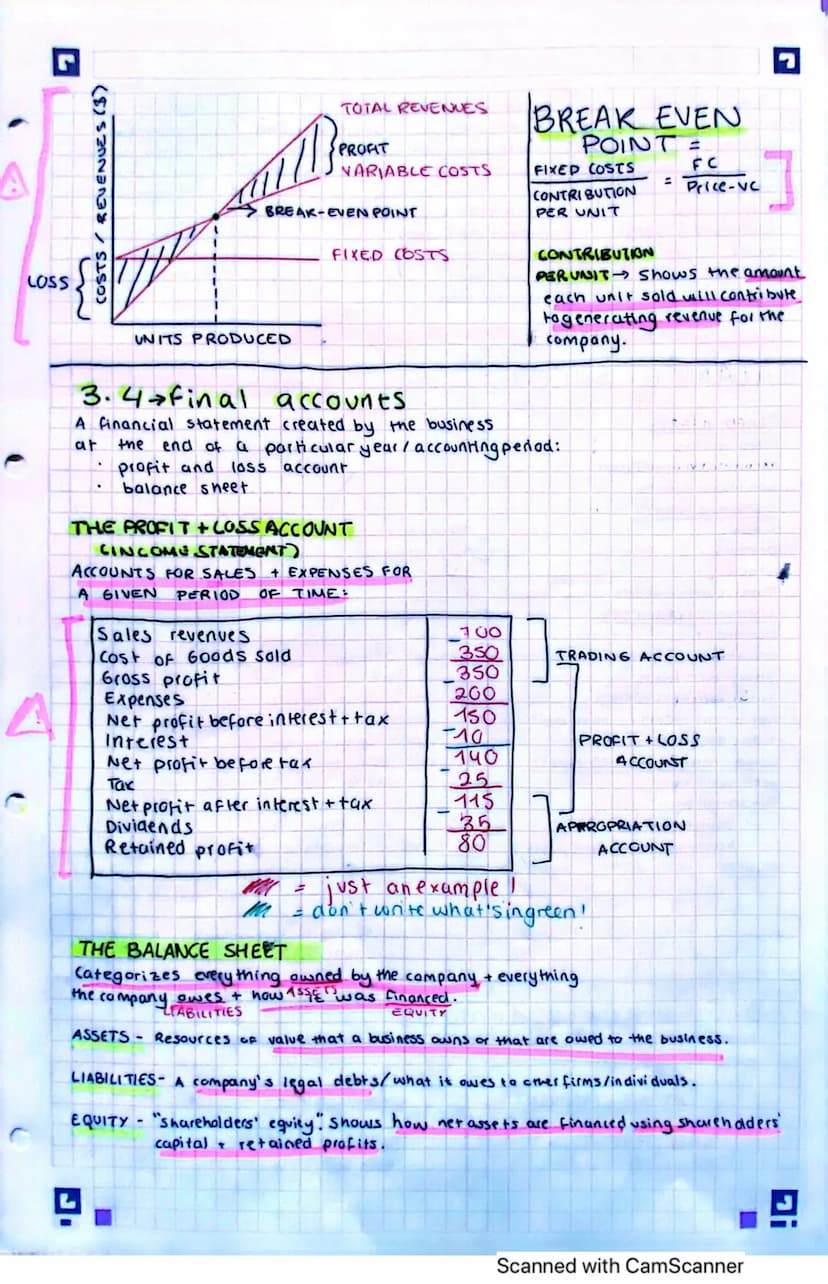 COSTS / REVENUES ($)
TOTAL REVENUES
PROFIT
VARIABLE COSTS
BREAK-EVEN POINT
FIXED COSTS
LOSS
UNITS PRODUCED
BREAK EVEN
POINT =
FIXED COSTS = FC
CONTRIBUTION Price-VC
PER UNIT
CONTRIBUTION
PER UNIT → shows the amount
each unit sold will contribute
to generating revenue for the
company.
3.4 → final accounts
A financial statement created by the business
at the end of a particular year / accounting period:
· profit and loss account
· balance sheet
THE PROFIT + LOSS ACCOUNT
(INCOME STATEMENT)
ACCOUNTS FOR SALES + EXPENSES FOR
A GIVEN PERIOD OF TIME:
Sales revenues 700
Cost of Goods sold - 350
Gross profit 350
Expenses - 200
Net profit before interest + tax 150
Interest - 10
Net profit before tax 140
Tax - 25
Net profit after interest + tax 115
Dividends - 35
Retained profit 80
TRADING ACCOUNT
PROFIT + LOSS
ACCOUNT
APPROPRIATION
ACCOUNT
= just an example!
= don't write what's in green!
THE BALANCE SHEET
Categorizes everything owned by the company + everything
ASSETS
the company owes + how it was financed.
LIABILITIES EQUITY
ASSETS - Resources of value that a business owns or that are owed to the business.
LIABILITIES - A company's legal debts/what it owes to other firms/individuals.
EQUITY - "shareholders' equity". Shows how net assets are financed using shareholders'
capital + retained profits.
Scanned with CamScanner